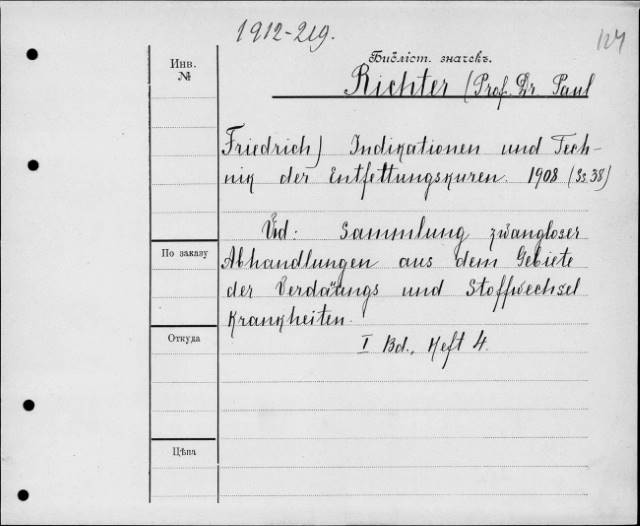 1912-219.
127
Инв.
№
Библіот. значекъ.
Richter (Prof. Dr Paul
Friedrich) Indikationen und Tech-
nik der Entfettungskuren. 1908 (Ss. 38)
Vid: Sammlung zwangloser
По заказу
Abhandlungen aus dem Gebiete
der Verdauungs und Stoffwechsel
Krankheiten.
Откуда
I Bd., Heft 4.
Цѣна